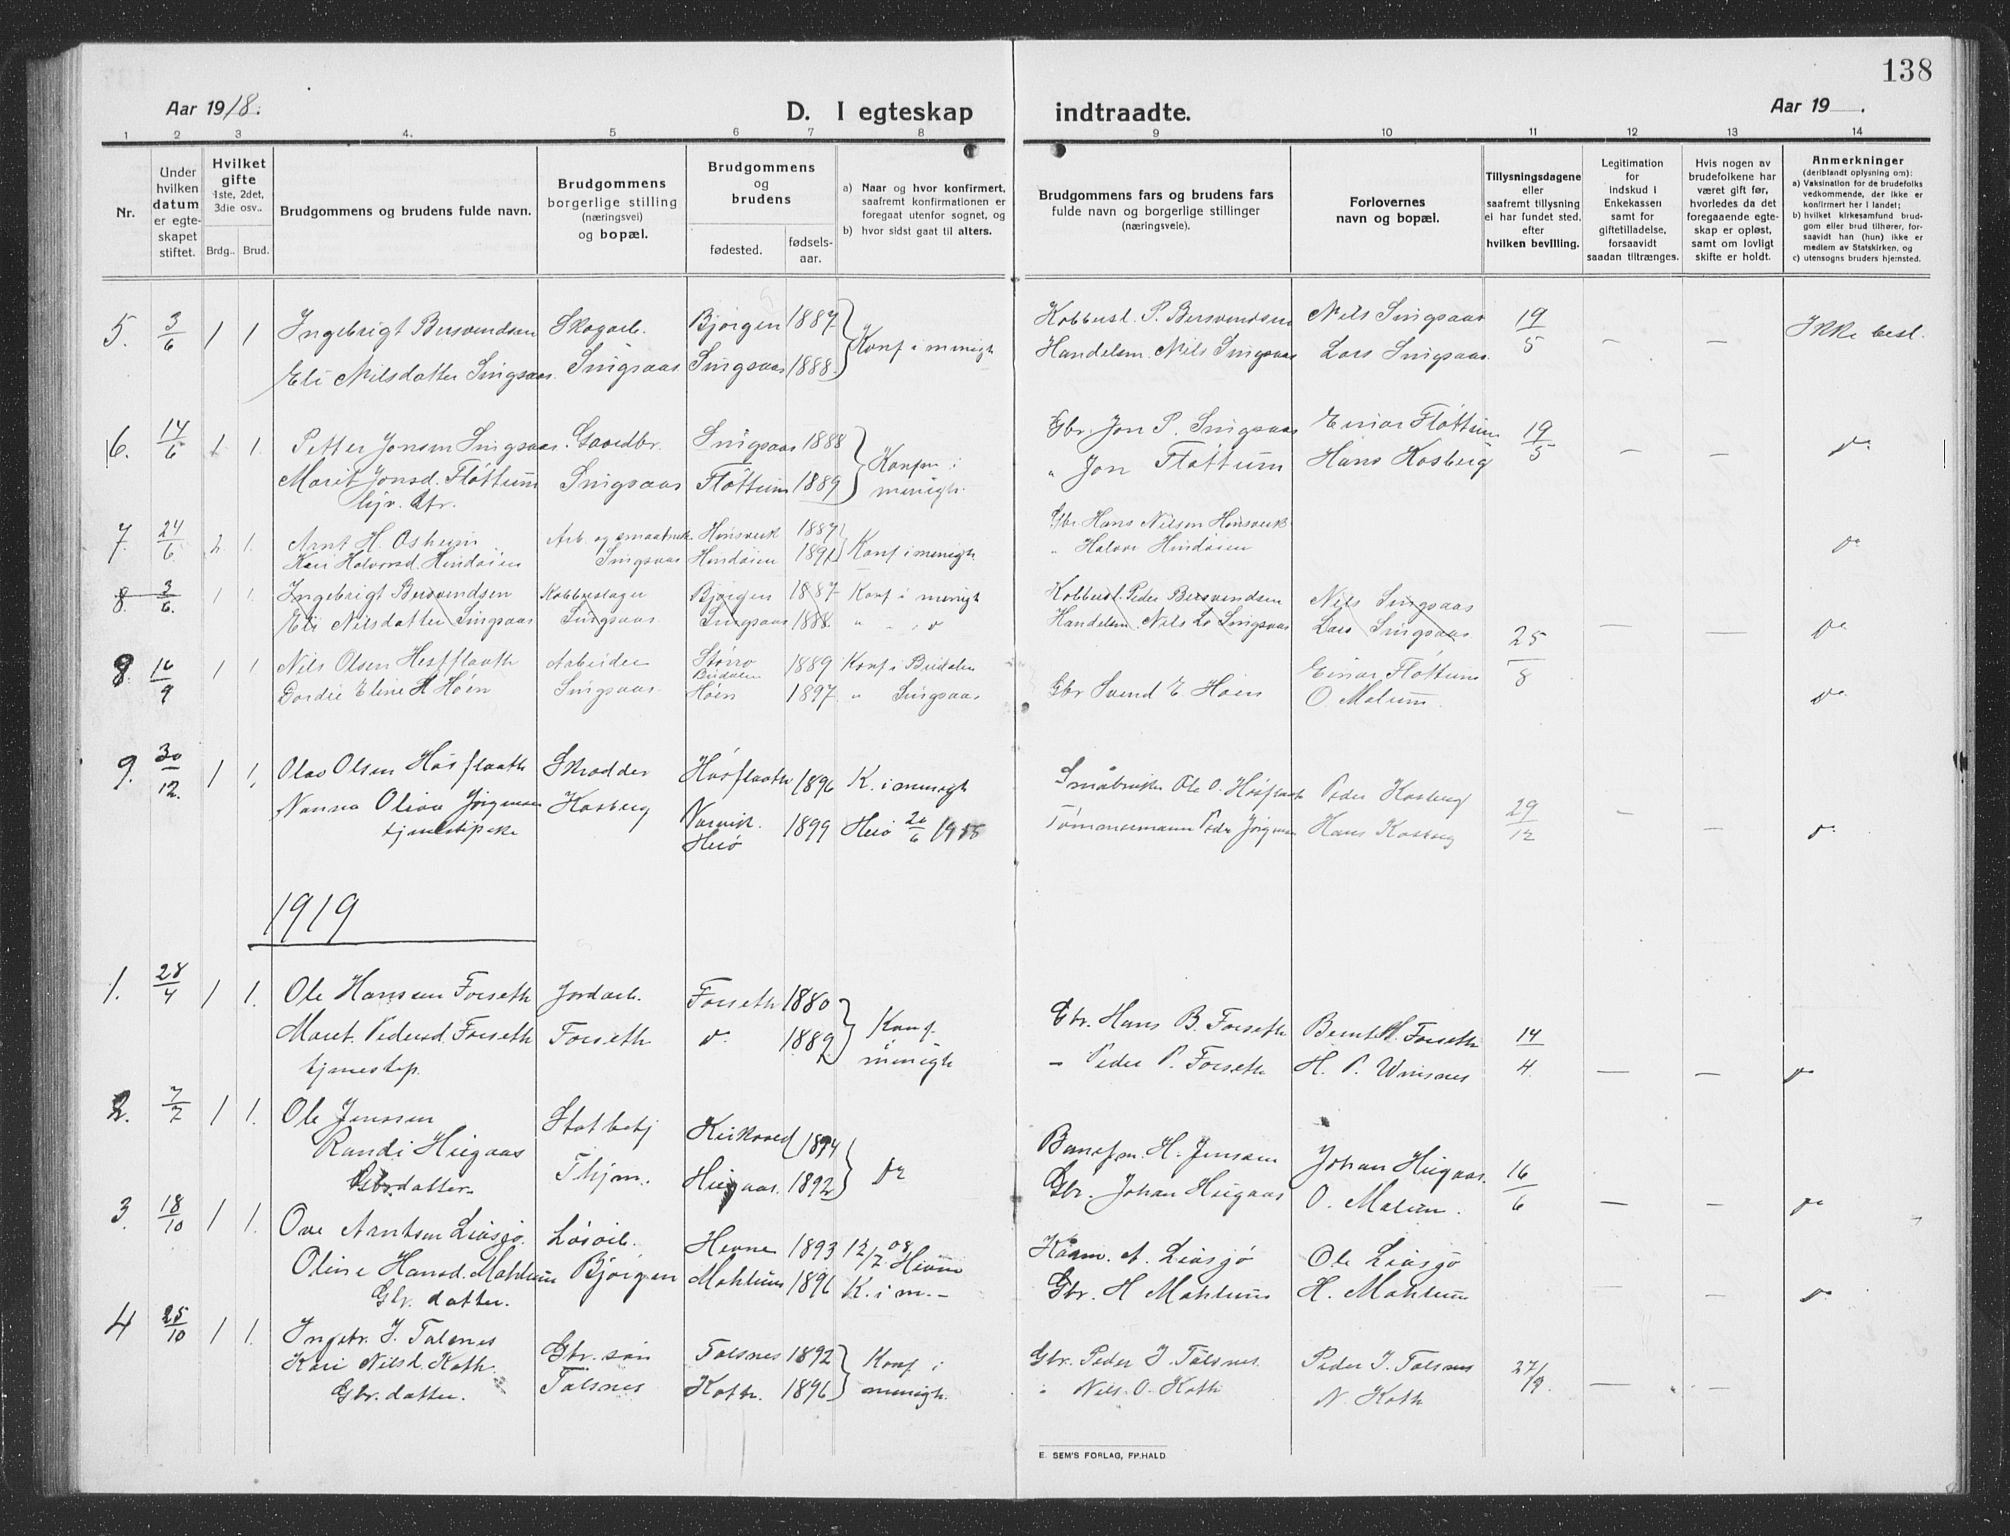 138
Aar 1918.
D. I egteskap
indtraadte.
Aar 19 .
1 2 3 4. 5 6 7 8 9 10 11 12 13 14
Nr.
Under
hvilken
datum
er egte-
skapet
stiftet.
Hvilket
gifte
1ste, 2det,
3die osv..
Brdg..
Brud.
Brudgommens og brudens fulde navn.
Brudgommens
borgerlige stilling
(næringsvei)
og bopæl.
Brudgommens
og
brudens
fødested.
fødsels-
aar.
a) Naar og hvor konfirmert,
saafremt konfirmationen er
foregaat utenfor sognet, og
b) hvor sidst gaat til alters.
Brudgommens fars og brudens fars
fulde navn og borgerlige stillinger
(næringsveie).
Forlovernes
navn og bopæl.
Tillysningsdagene
eller
saafremt tillysning
ei har fundet sted,
efter
hvilken bevilling.
Legitimation
for
indskud i
Enkekassen
samt for
giftetilladelse,
forsaavidt
saadan tiltrænges.
Hvis nogen av
brudefolkene har
været gift før,
hvorledes da det
foregaaende egte-
skap er opløst,
samt om lovligt
skifte er holdt.
Anmerkninger
(deriblandt oplysning om):
a) Vaksination for de brudefolks
vedkommende, der ikke er
konfirmert her i landet;
b) hvilket kirkesamfund brud-
gom eller brud tilhører, for-
saavidt han (hun) ikke er
medlem av Statskirken, og
c) utensogns bruders hjemsted.
5. 3/6 1 1 Ingebrigt Bersvendsen Skogarb. Bjørgen 1887 Kobbersl. P. Bersvendsen Nils Singsaas 19/5 — — Ikke besl.
Eli Nilsdatter Singsaas. Singsaas Singsaas 1888. Konf i menigh Handelsm. Nils Singsaas Lars Singsaas.
6. 14/6 1. 1. Petter Jonsen Singsaas. Gaardbr. Singsaas 1888 Konfm i Gbr. Jon P. Singsaas Einar Fløttum 19/5 — — do
Marit Jonsd. Fløttum Singsaas Fløttum 1889 menigh. " Jon Fløttum Hans Kosberg
Gbr. dtr.
7. 24/6 2. 1. Arnt H. Osheim Arb. og smaabruk Hønsverk 1887 Gbr Hans Nilsen Hønsverk
Kari Halvorsd. Hindøien Singsaas Hindøien 1891 Konf i menigh " Halvor Hindøien do
8. 3/6. 1 1 Ingebrigt Bersvendsen Kobberslager Bjørgen 1887 Konf i menigh Kobbersl. Peder Bersvendsen Nils Singsaas
Eli Nilsdatter Singsaas Singsaas. Singsaas 1888. " " do Handelsm. Nils L. Singsaas Lars Singsaas — — do
8. 16/9 1 1. Nils Olsen Hesfflaath Arbeider Størro 1889 Konf i Budalen Einar Fløttum 25/8
Budalen
Dordie Eline H Høen Singsaas. Høen 1897 " Singsaas Gbr Svend E Høen O. Malum. do
9. 30/12. 1 1. Olav Olsen Høsflaath Skrædder Høsflaath 1896 K. i menigh Småbruker Ole O. Høsflaath Peder Kosberg
Nanna Olivia Jørgensen Kosberg Narvik. 1899 20/6 Tømmermann Peder Jørgensen Hans Kosberg 29/12 — — do
tjenestepike
1919
1. 28/4 1 1. Ole Hansen Forseth Jordarb. Forseth 1880 Konf. Gbr. Hans B. Forseth Bernt H. Forseth 14/4
Marit Pedersd. Forseth Forseth do 1889 menigh — Peder P. Forseth H. P. Winsnes — — do
tjenestep.
2. 7/7 1 1. Ole Jenssen Statbetj Kirkvold 1894 Banefm. H. Jenssen Johan Haugaas. 16/6
Randi Haugaas Thjm. Haugaas. 1892 do Gbr. Johan Haugaas O. Malum. — — do
Gbr. datter.
3. 18/10 1 1. Ove Arntsen Livsjø. Løsarb. Hevne 1893 12/7 08 Hevne A. Livsjø Ole Livsjø
Oline Hansd. Mahlum Bjørgen Mahlum 1896 K. i m. — Gbr. H Mahlum H. Mahlum — — do
Gbr. datter.
4 25/10 1 1. Ingebr. J. Talsnes Gbr. søn Talsnes 1892 Konf i Gbr. Peder J. Talsnes. Peder J. Talsnes 27/9. — —
Kari Nilsd. Koth. Talsnes Koth. 1896 menigh. " Nils. O. Koth N. Koth
Gbr. datter.
E. SEM'S FORLAG, FR.HALD